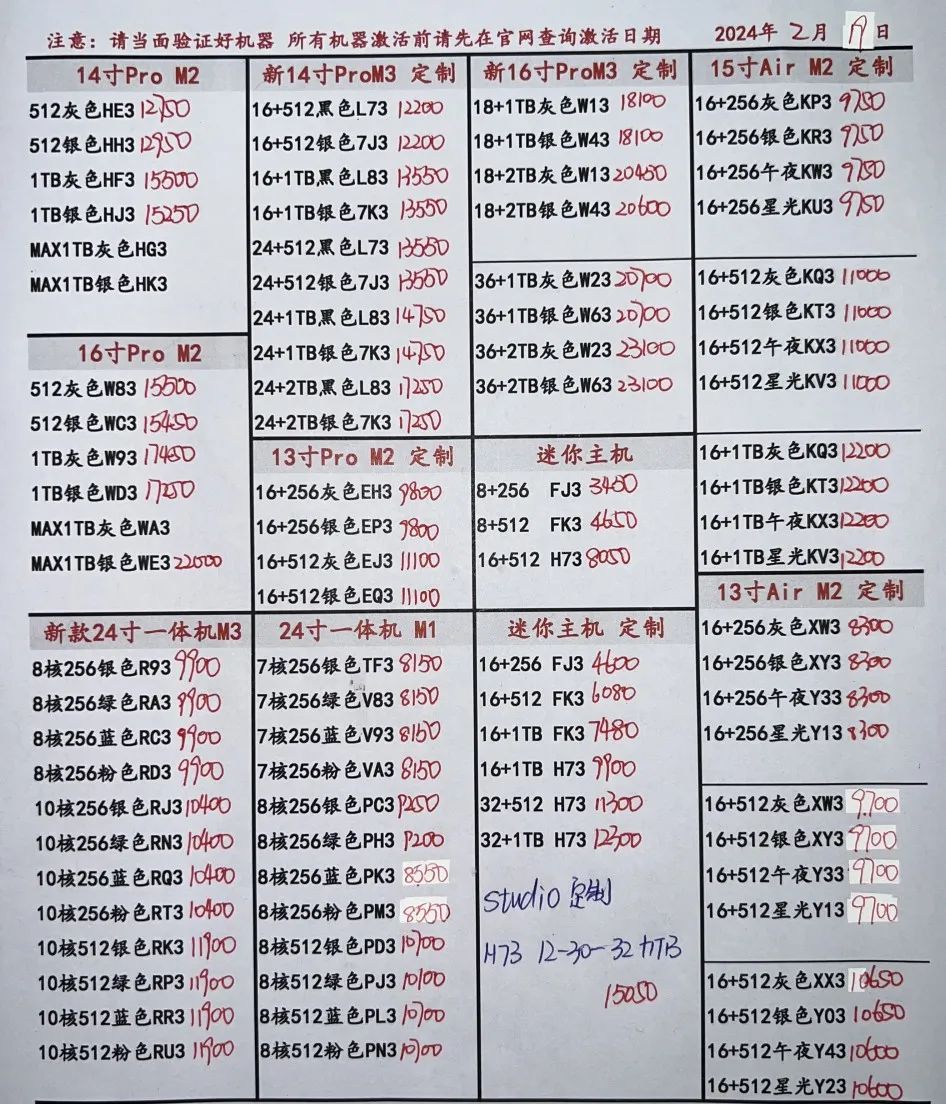 注意：请当面验证好机器 所有机器激活前请先在官网查询激活日期 2024年 2月 19日
14寸Pro M2
512灰色HE3 12750
512银色HH3 12950
1TB灰色HF3 15500
1TB银色HJ3 15250
MAX1TB灰色HG3
MAX1TB银色HK3
16寸Pro M2
512灰色W83 15500
512银色WC3 15450
1TB灰色W93 17450
1TB银色WD3 17250
MAX1TB灰色WA3
MAX1TB银色WE3 22000
新款24寸一体机M3
8核256银色R93 9900
8核256绿色RA3 9900
8核256蓝色RC3 9900
8核256粉色RD3 9900
10核256银色RJ3 10400
10核256绿色RN3 10400
10核256蓝色RQ3 10400
10核256粉色RT3 10400
10核512银色RK3 11900
10核512绿色RP3 11900
10核512蓝色RR3 11900
10核512粉色RU3 11900
新14寸ProM3 定制
16+512黑色L73 12200
16+512银色7J3 12200
16+1TB黑色L83 13550
16+1TB银色7K3 13550
24+512黑色L73 13550
24+512银色7J3 13550
24+1TB黑色L83 14750
24+1TB银色7K3 14750
24+2TB黑色L83 17250
24+2TB银色7K3 17250
13寸Pro M2 定制
16+256灰色EH3 9800
16+256银色EP3 9800
16+512灰色EJ3 11100
16+512银色EQ3 11100
24寸一体机 M1
7核256银色TF3 8150
7核256绿色V83 8150
7核256蓝色V93 8150
7核256粉色VA3 8150
8核256银色PC3 9250
8核256绿色PH3 9200
8核256蓝色PK3 8550
8核256粉色PM3 8550
8核512银色PD3 10700
8核512绿色PJ3 10100
8核512蓝色PL3 10700
8核512粉色PN3 10700
新16寸ProM3 定制
18+1TB灰色W13 18100
18+1TB银色W43 18100
18+2TB灰色W13 20450
18+2TB银色W43 20600
36+1TB灰色W23 20700
36+1TB银色W63 20700
36+2TB灰色W23 23100
36+2TB银色W63 23100
迷你主机
8+256 FJ3 3450
8+512 FK3 4650
16+512 H73 8050
迷你主机 定制
16+256 FJ3 4600
16+512 FK3 6080
16+1TB FK3 7480
16+1TB H73 9900
32+512 H73 11300
32+1TB H73 12300
studio 定制
H73 12-30-32 1TB
15050
15寸Air M2 定制
16+256灰色KP3 9750
16+256银色KR3 9750
16+256午夜KW3 9750
16+256星光KU3 9750
16+512灰色KQ3 11000
16+512银色KT3 11000
16+512午夜KX3 11000
16+512星光KV3 11000
16+1TB灰色KQ3 12200
16+1TB银色KT3 12200
16+1TB午夜KX3 12200
16+1TB星光KV3 12200
13寸Air M2 定制
16+256灰色XW3 8300
16+256银色XY3 8300
16+256午夜Y33 8300
16+256星光Y13 8300
16+512灰色XW3 9700
16+512银色XY3 9700
16+512午夜Y33 9700
16+512星光Y13 9700
16+512灰色XX3 10650
16+512银色Y03 10650
16+512午夜Y43 10600
16+512星光Y23 10600